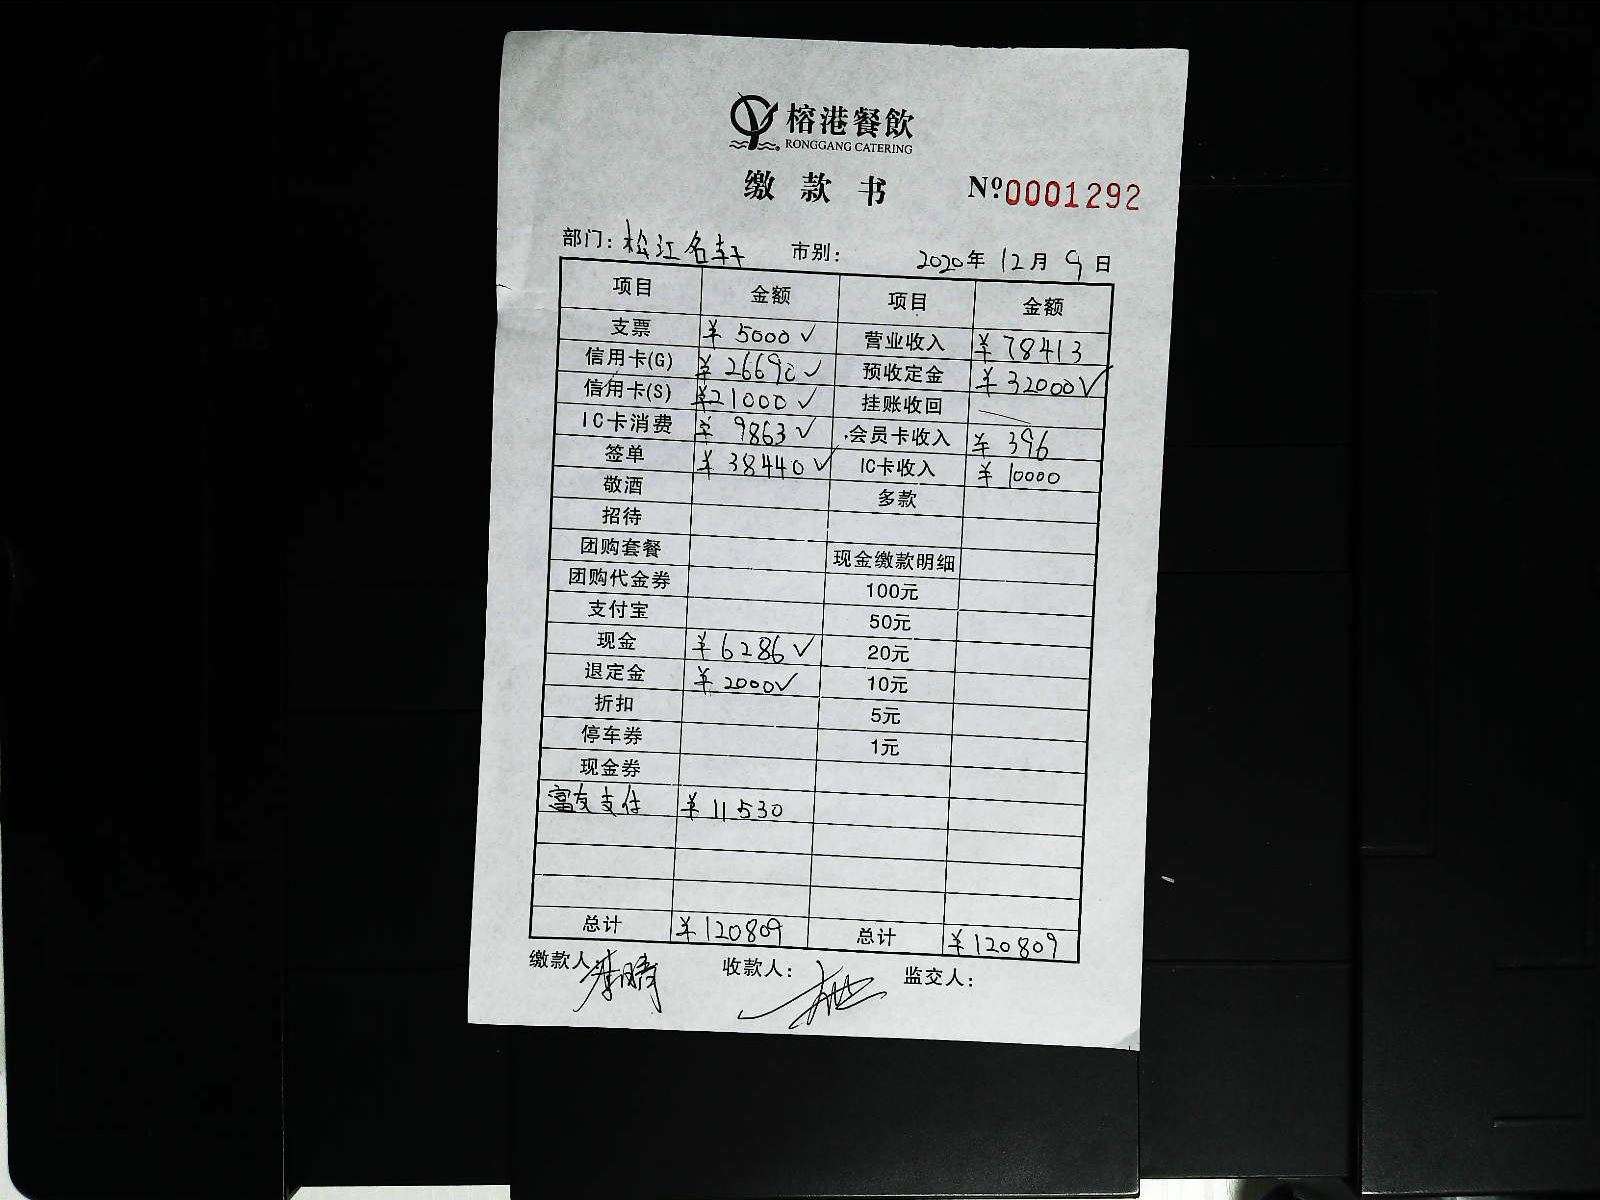 榕港餐飲
RONGGANG CATERING
缴款书 Nº.0001292
部门：松江名轩 市别： 2020年12月9日
项目 金额 项目 金额
支票 ¥5000✓ 营业收入 ¥78413
信用卡(G) ¥26690✓ 预收定金 ¥32000✓
信用卡(S) ¥21000✓ 挂账收回
IC卡消费 ¥9863✓ 会员卡收入 ¥396
签单 ¥38440✓ IC卡收入 ¥10000
敬酒 多款
招待
团购套餐 现金缴款明细
团购代金券 100元
支付宝 50元
现金 ¥6286✓ 20元
退定金 ¥2000✓ 10元
折扣 5元
停车券 1元
现金券
富友支付 ¥11530
总计 ¥120809 总计 ¥120809
缴款人 收款人： 监交人：